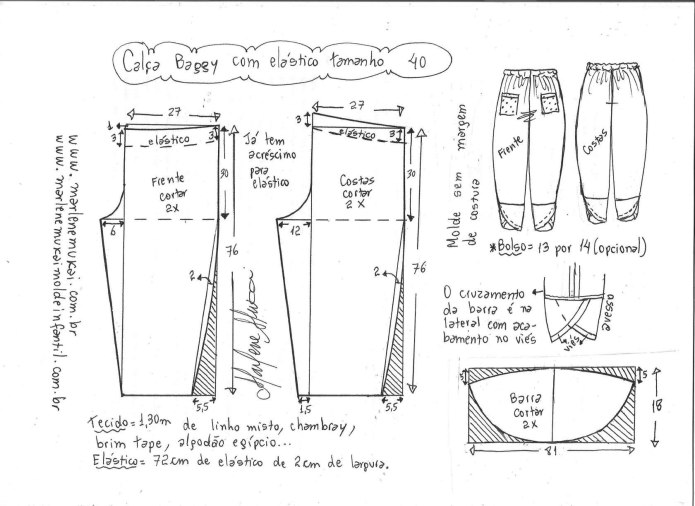 Calça Baggy com elástico tamanho 40
www.marlenemukai.com.br
www.marlenemukaimoldeinfantil.com.br
27
1
3
elástico
3
Frente
cortar
2X
30
6
76
2
5,5
Já tem
acréscimo
para
elástico
Marlene Mukai
27
3
elástico
3
Costas
cortar
2X
30
12
76
2
1,5
5,5
Molde sem margem
de costura
Frente
Costas
*Bolso= 13 por 14 (opcional)
O cruzamento
da barra é na
lateral com aca-
bamento no viés
avesso
viés
Barra
cortar
2X
5
18
81
Tecido= 1,30m de linho misto, chambray,
brim tape, algodão egípcio...
Elástico= 72cm de elástico de 2cm de largura.